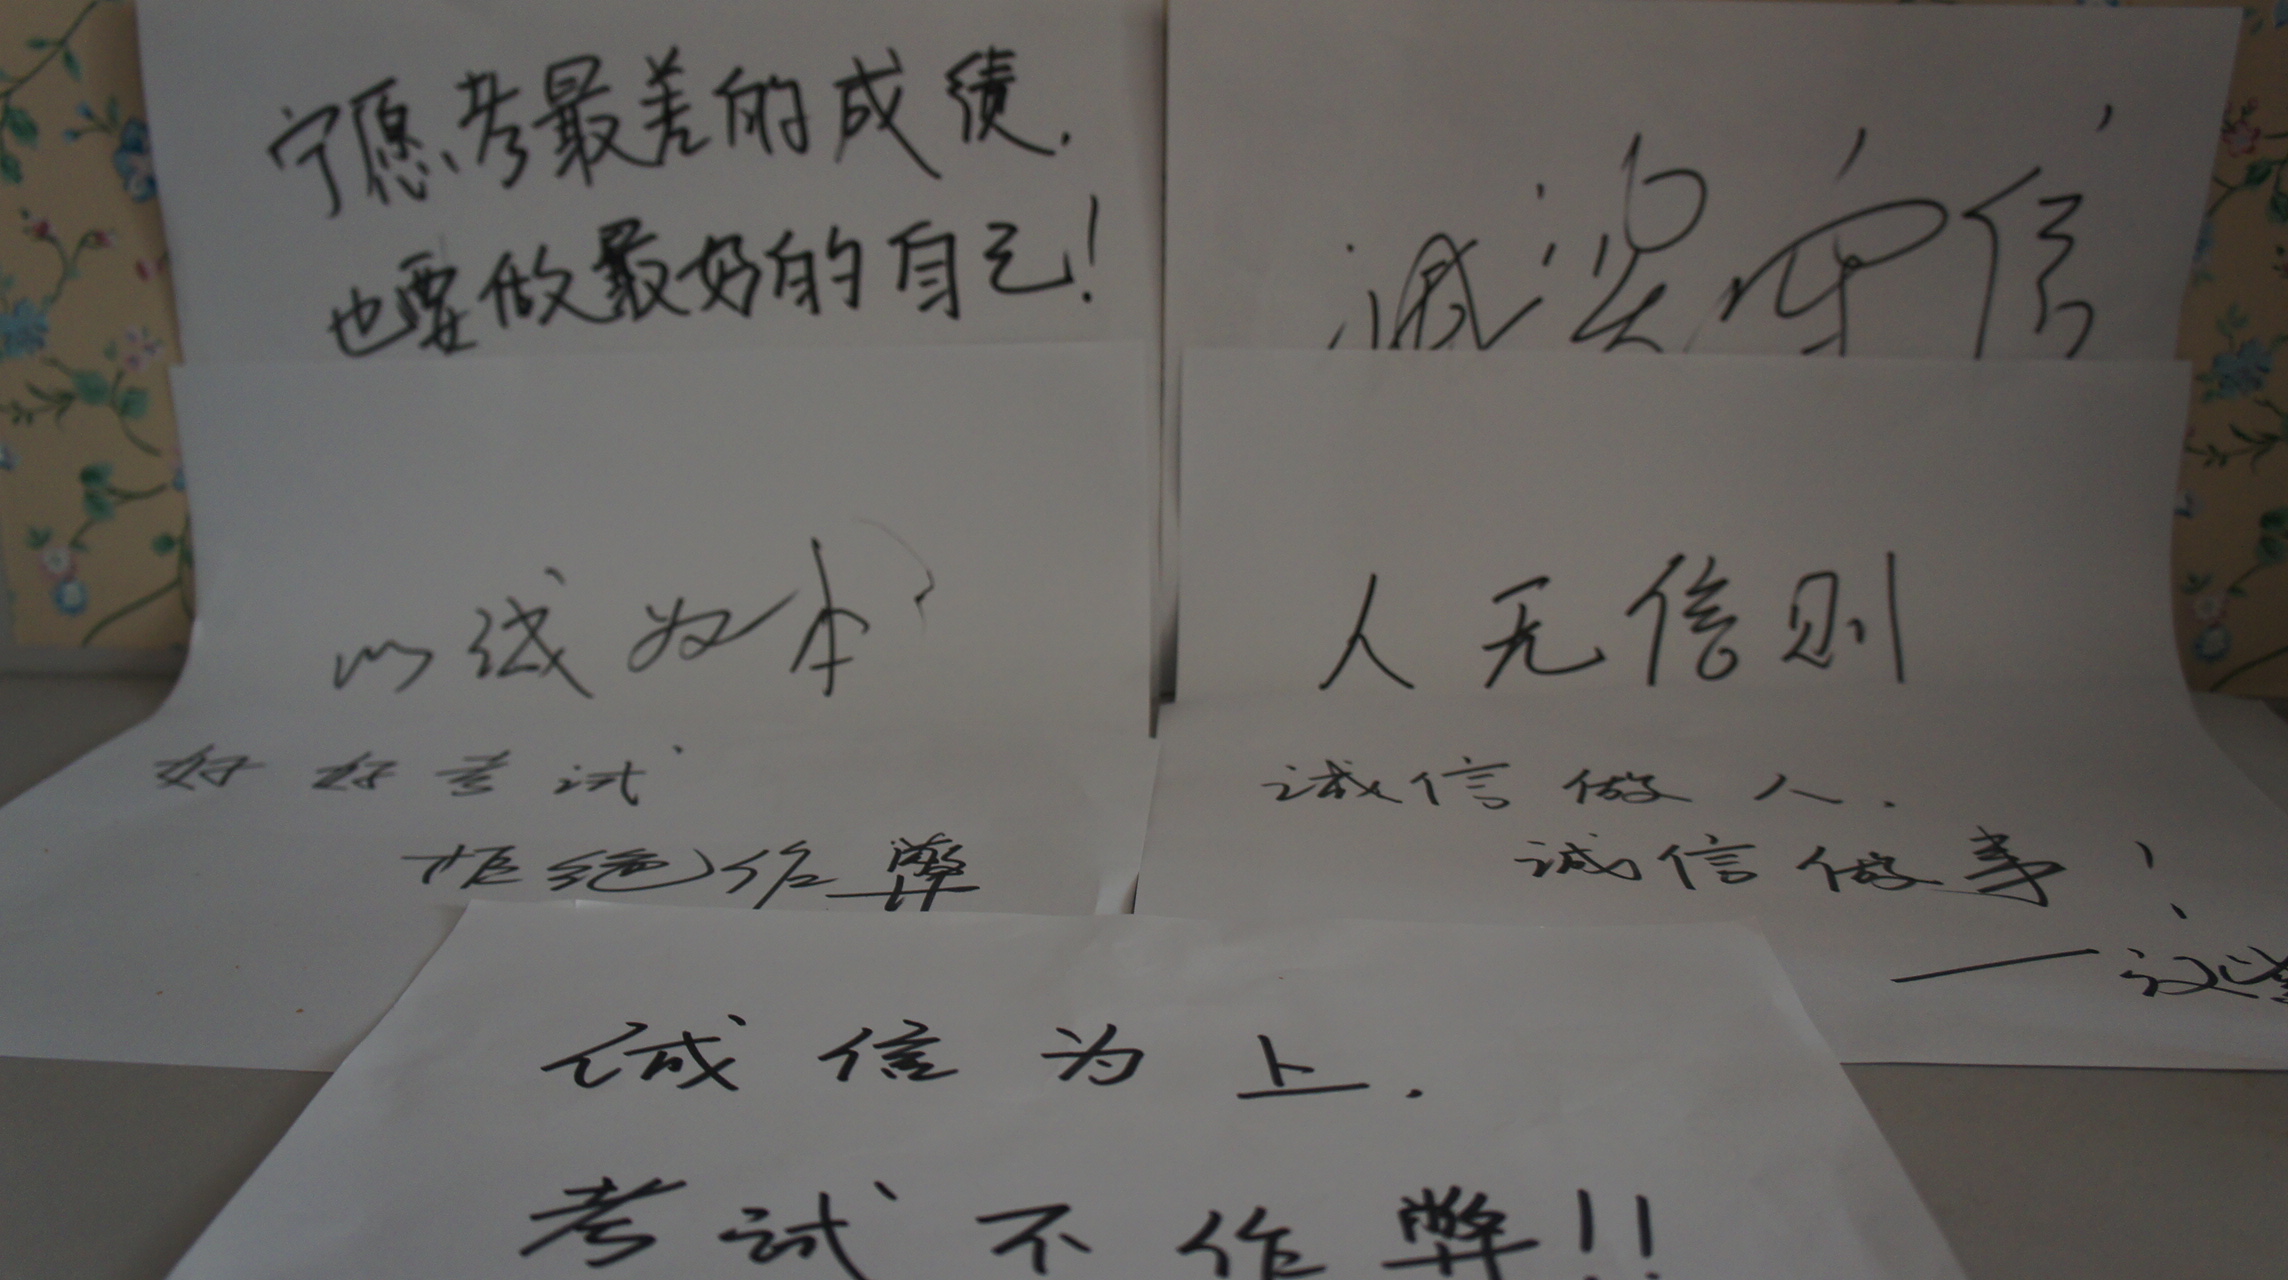 宁愿考最差的成绩.
也要做最好的自己!
诚实守信
以诚为本
好好考试
拒绝作弊
人无信则
诚信做人.
诚信做事!
诚信为上.
考试不作弊!!